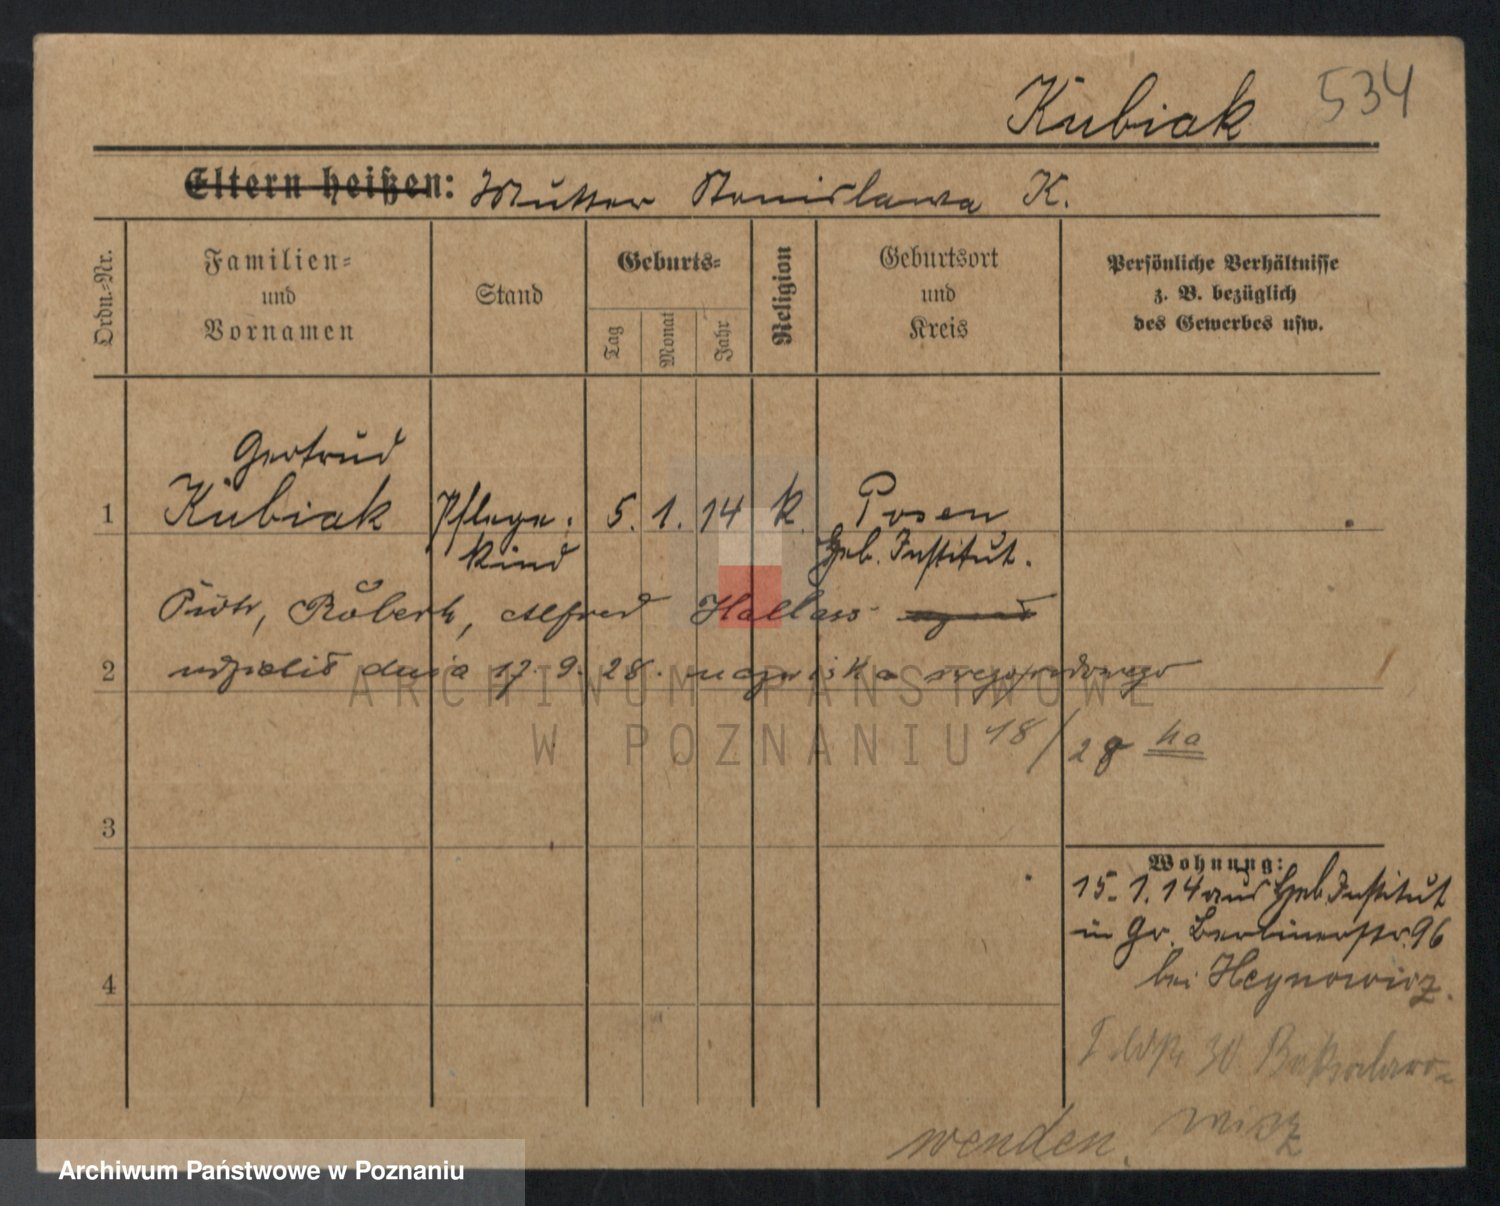 Kubiak 534
Eltern heißen: Mutter Stanislawa K.
Ordn.-Nr.
Familien-
und
Vornamen
Stand
Geburts-
Tag
Monat
Jahr
Religion
Geburtsort
und
Kreis
Persönliche Verhältnisse
z. B. bezüglich
des Gewerbes usw.
Gertrud
1 Kubiak Pflege- 5. 1. 14 k. Posen
kind Geb. Institut.
Piotr, Robert, Alfred Hallass
2 udzielił dnia 17. 9. 28. nazwiska swego
18/28
3
Wohnung:
15. 1. 14 aus Geb Institut
in Gr. Berlinerstr. 96
4 bei Heynowicz.
30
wenden.
ARCHIWUM PAŃSTWOWE
W POZNANIU
Archiwum Państwowe w Poznaniu